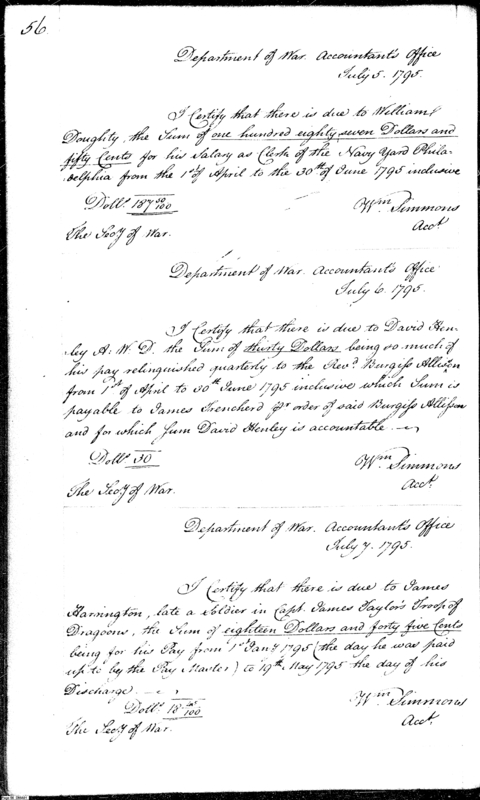 56
Department of War. Accountant's Office
July 5. 1795.
I Certify that there is due to William
Doughty, the Sum of one hundred eighty seven Dollars and
fifty Cents for his Salary as Clerk of the Navy Yard Phila-
delphia from the 1st of April to the 30th of June 1795 inclusive
Dolls. 187 50/100
Wm Simmons
Acct.
The Secy of War.
Department of War. Accountant's Office
July 6. 1795.
I Certify that there is due to David Hen-
ley A. W. D. the Sum of thirty Dollars being so much of
his pay relinquished quarterly to the Revd. Burgiss Allison
from 1st of April to 30th June 1795 inclusive which Sum is
payable to James Trenchard pr order of said Burgiss Allison
and for which Sum David Henley is accountable.
Dolls. 30
Wm Simmons
Acct.
The Secy of War.
Department of War. Accountant's Office
July 7. 1795.
I Certify that there is due to James
Harrington, late a Soldier in Capt. James Taylor's Troop of
Dragoons, the Sum of eighteen Dollars and forty five Cents
being for his Pay from 1st Jany 1795 (the day he was paid
up to by the Pay Master) to 19th May 1795 the day of his
Discharge.
Dolls. 18 45/100
Wm Simmons
Acct.
The Secy of War.